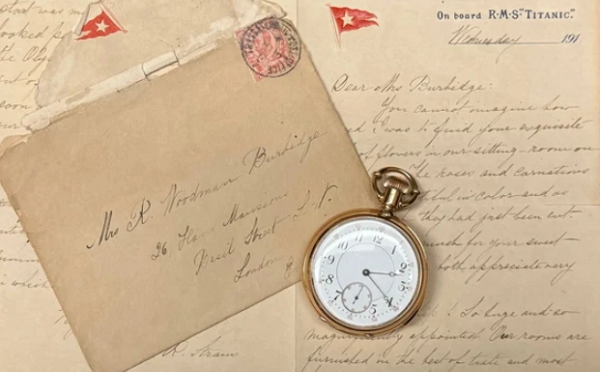 start was
looked
On board R·M·S "TITANIC."
Wednesday 191
Dear Mrs Burbidge:
You cannot imagine how
d I was to find your exquisite
of flowers in our sitting-room on
The roses and carnations
ful in color and as
they had just been cut.
much for your sweet
both appreciate very
! So huge and so
magnificently appointed. Our rooms are
furnished in the best of taste and most
Mrs R. Woodman Burbidge
26 Hans Mansions
Street S.W.
London
R. Straus